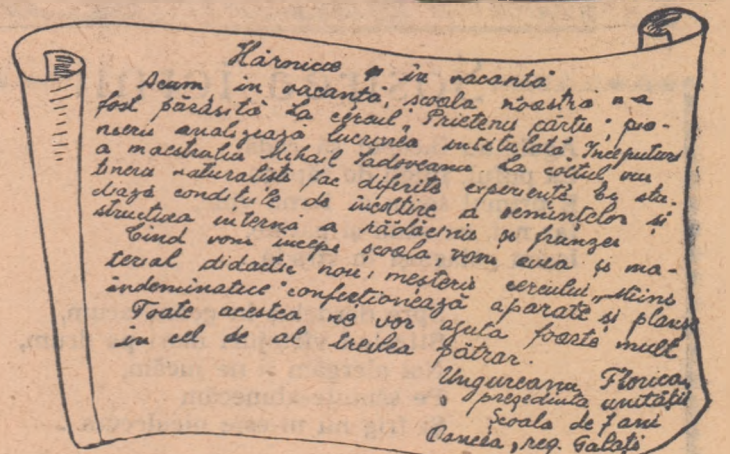 Hărnicie în vacanță
Acum, în vacanță, școala noastră n-a
fost părăsită. La cercul „Prietenii cărții”, pio-
nierii analizează lucrarea intitulată „Începuturi”
a maestrului Mihail Sadoveanu. La colțul viu
tinerii naturaliști fac diferite experiențe. Ei stu-
diază condițiile de încolțire a semințelor și
structura internă a rădăcinii și frunzei.
Cînd vom începe școala, vom avea și ma-
terial didactic nou; meșterii cercului „Mîini
îndemînatice” confecționează aparate și planșe.
Toate acestea ne vor ajuta foarte mult
în cel de al treilea pătrar.
Ungureanu Florica,
președinta unității
Școala de 7 ani
Oancea, reg. Galați